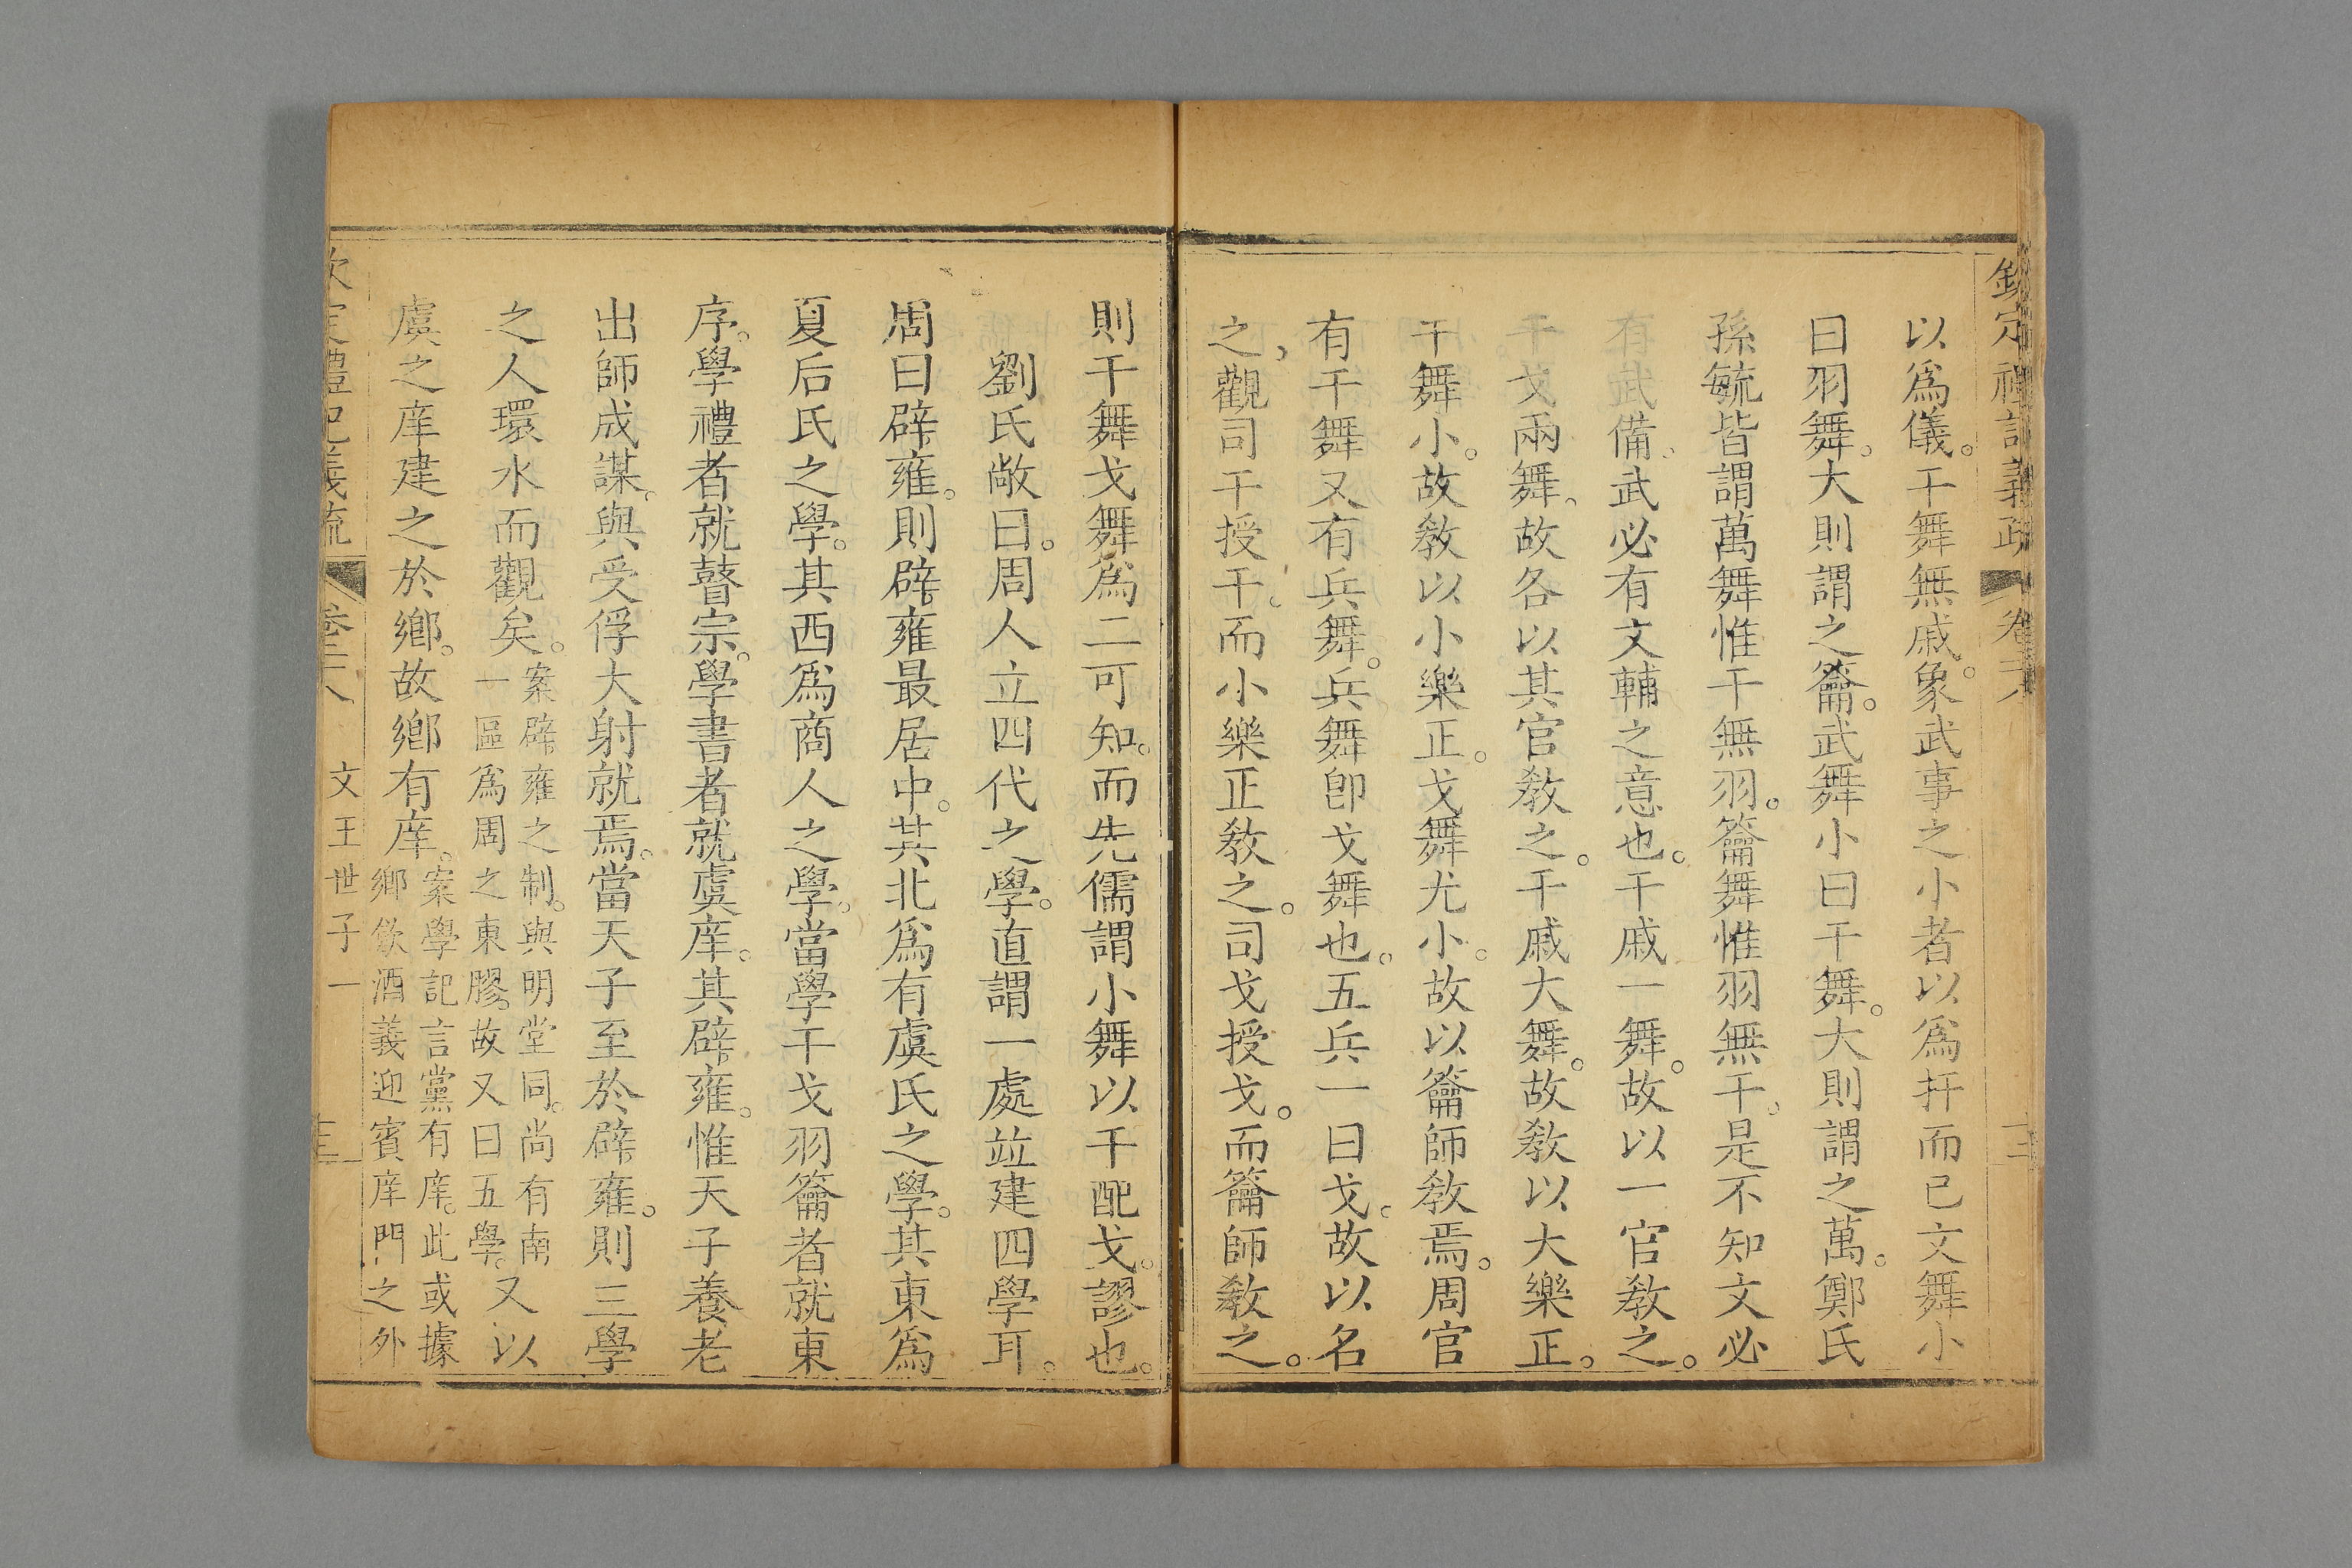 欽定禮記義疏 卷二八
以爲儀。干舞無戚。象武事之小者以爲扞而已文舞小
曰羽舞。大則謂之籥。武舞小曰干舞。大則謂之萬。鄭氏
孫毓皆謂萬舞惟干無羽。籥舞惟羽無干。是不知文必
有武備。武必有文輔之意也。干戚一舞。故以一官敎之。
干戈兩舞。故各以其官敎之。干戚大舞。故敎以大樂正。
干舞小。故敎以小樂正。戈舞尤小。故以籥師敎焉。周官
有干舞又有兵舞。兵舞卽戈舞也。五兵一曰戈。故以名
之，觀司干授干。而小樂正敎之。司戈授戈。而籥師敎之。
則干舞戈舞爲二可知。而先儒謂小舞以干配戈。謬也。
劉氏敞曰。周人立四代之學。直謂一處竝建四學耳。
周曰辟雍。則辟雍最居中。其北爲有虞氏之學。其東爲
夏后氏之學。其西爲商人之學。當學干戈羽籥者就東
序。學禮者就瞽宗。學書者就虞庠。其辟雍。惟天子養老
出師成謀。與受俘大射就焉。當天子至於辟雍。則三學
之人環水而觀矣。案辟雍之制。與明堂同。尚有南一區爲周之東膠。故又曰五學。又以
虞之庠建之於鄕。故鄕有庠。案學記言黨有庠。此或據鄕飮酒義迎賓庠門之外
欽定禮記義疏 卷二八 文王世子一